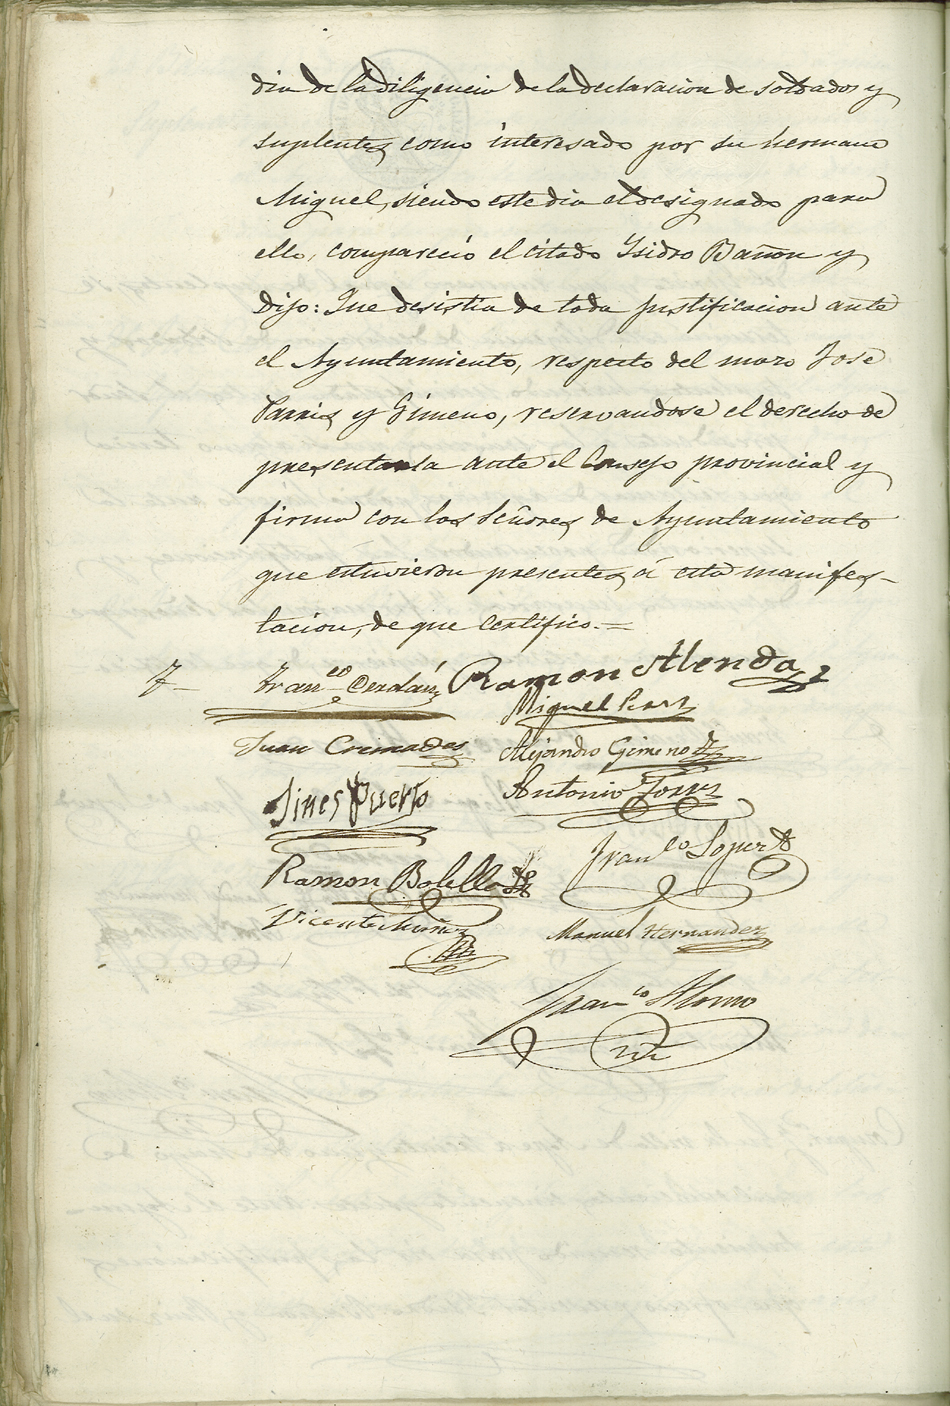 dia de la diligencia de la declaracion de soldados y
suplentes como interesado por su hermano
Miguel, siendo este dia el designado para
ello, compareció el citado Ysidro Bañon y
Dijo: Que desistia de toda justificacion ante
el Ayuntamiento, respecto del mozo José
Parris y Gimeno, reservandose el derecho de
presentarla ante el Consejo provincial y
firma con los Señores de Ayuntamiento
que estuvieron presentes á esta manifes-
tacion, de que Certifico.=
Fran.co Cerdán Ramon Alenda
Miguel
Juan Cremades Alejandro Gimeno
Jines Puerto Antonio
Ramon Fran.co
Vicente Muñoz Manuel Hernandez
Fran.co